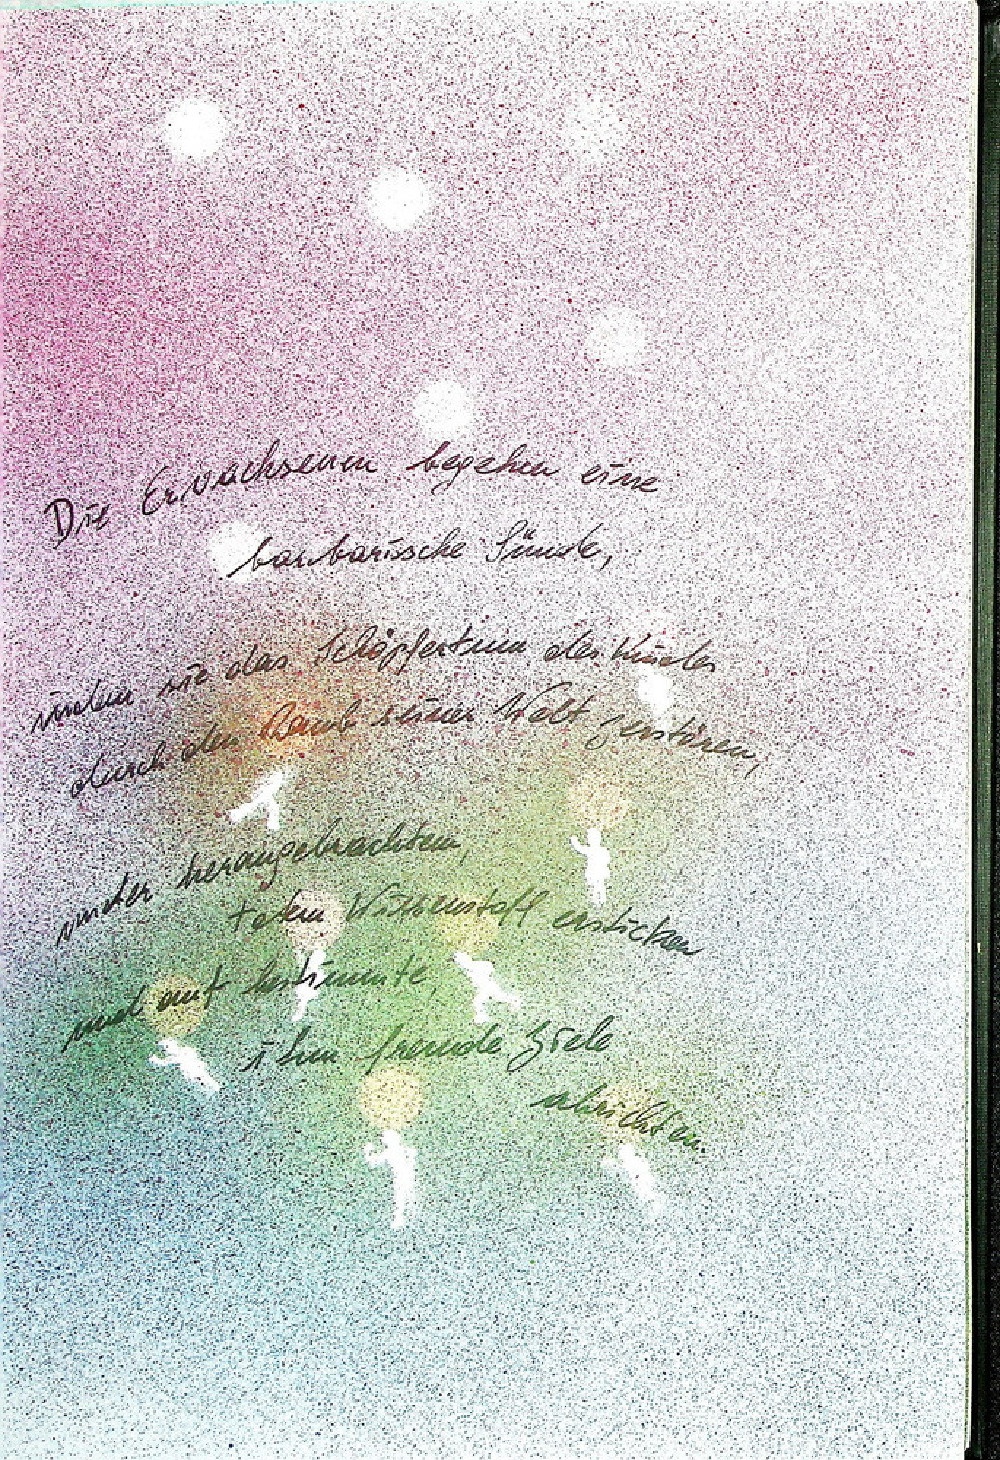 Die Erwachsenen begehen eine
barbarische Sünde,
indem sie das Schöpfertum des Kindes
durch den Raub seiner Welt zerstören,
unter herangebrachtem,
totem Wissensstoff ersticken
und auf bestimmte,
ihm fremde Ziele
abrichten.